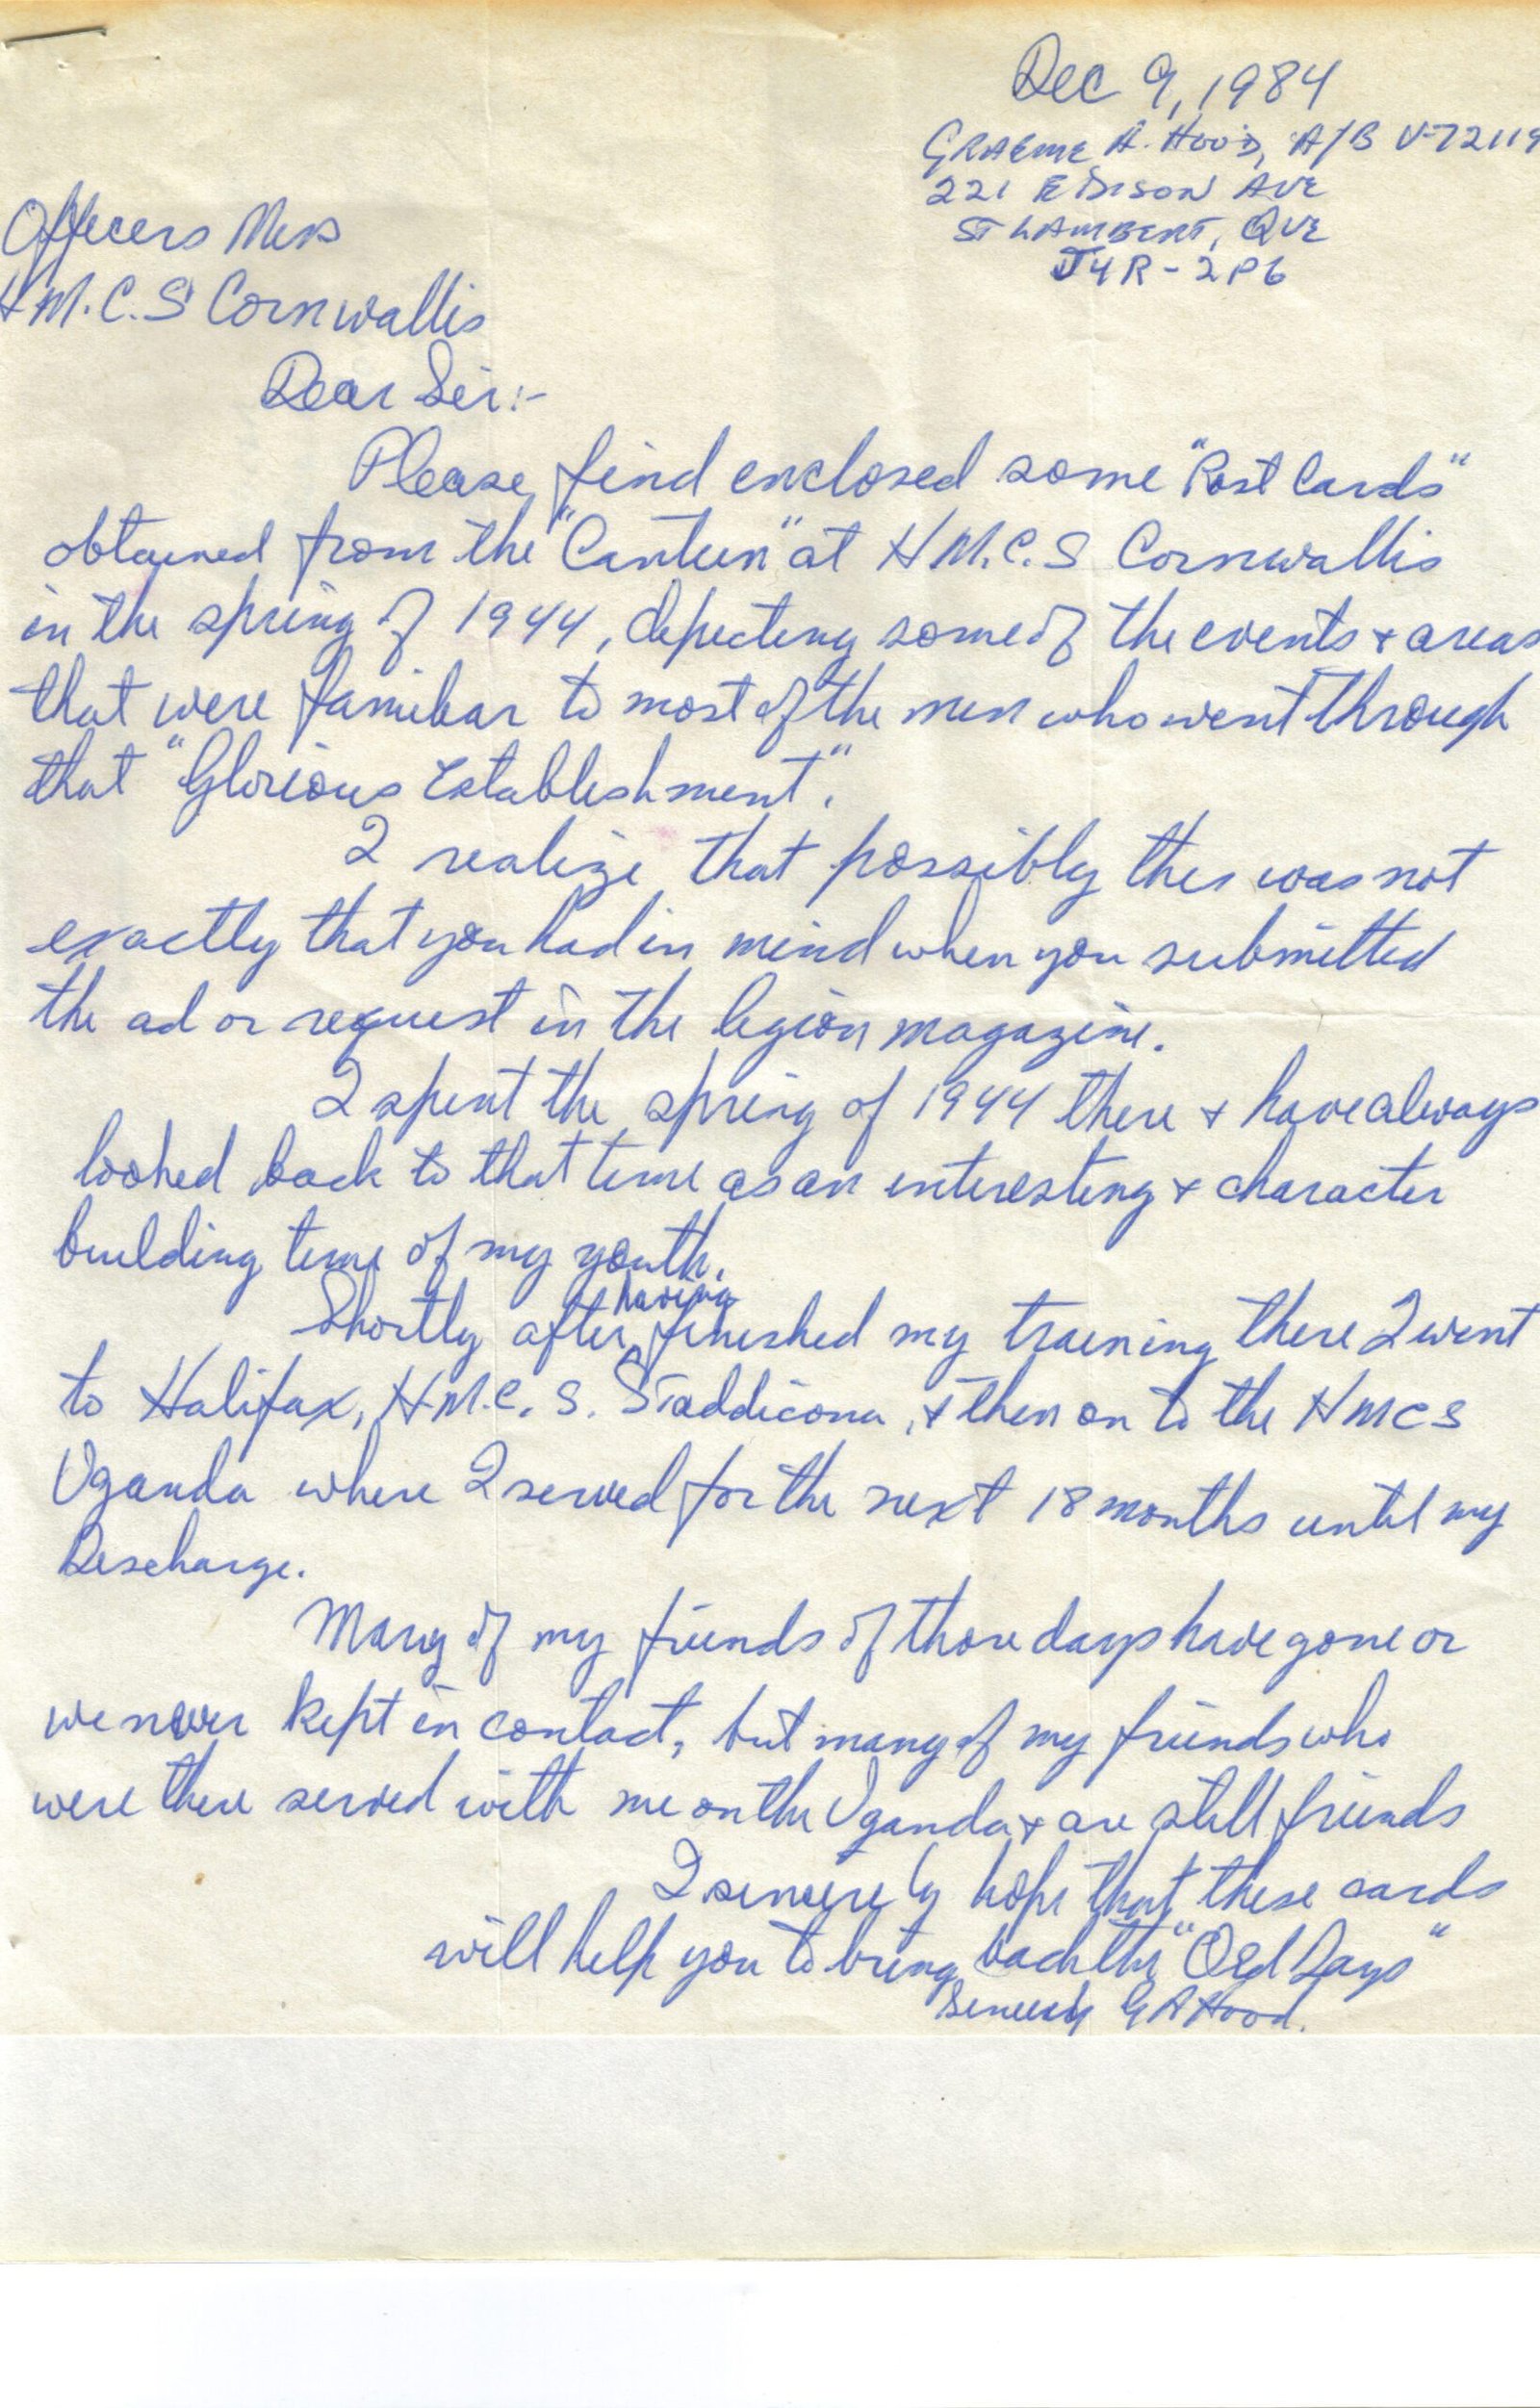 Dec 9, 1984
GRAEME A. HOOD, A/B V-72119
221 EDISON AVE
ST LAMBERT, QUE
J4R-2P6
Officers Mess
H.M.C.S Cornwallis
Dear Sir:-
Please find enclosed some "Post Cards"
obtained from the "Canteen" at H.M.C.S Cornwallis
in the spring of 1944, depicting some of the events + areas
that were familiar to most of the men who went through
that "Glorious Establishment".
I realize that possibly this was not
exactly that you had in mind when you submitted
the ad or request in the legion magazine.
I spent the spring of 1944 there + have always
looked back to that time as an interesting + character
building time of my youth.
Shortly after having finished my training there I went
to Halifax, H.M.C.S. Staddicona, + then on to the HMCS
Uganda where I served for the next 18 months until my
Discharge.
Many of my friends of those days have gone or
we never kept in contact, but many of my friends who
were there served with me on the Uganda + are still friends
I sincerely hope that these cards
will help you to bring back the "Old Days"
Sincerely G A Hood.